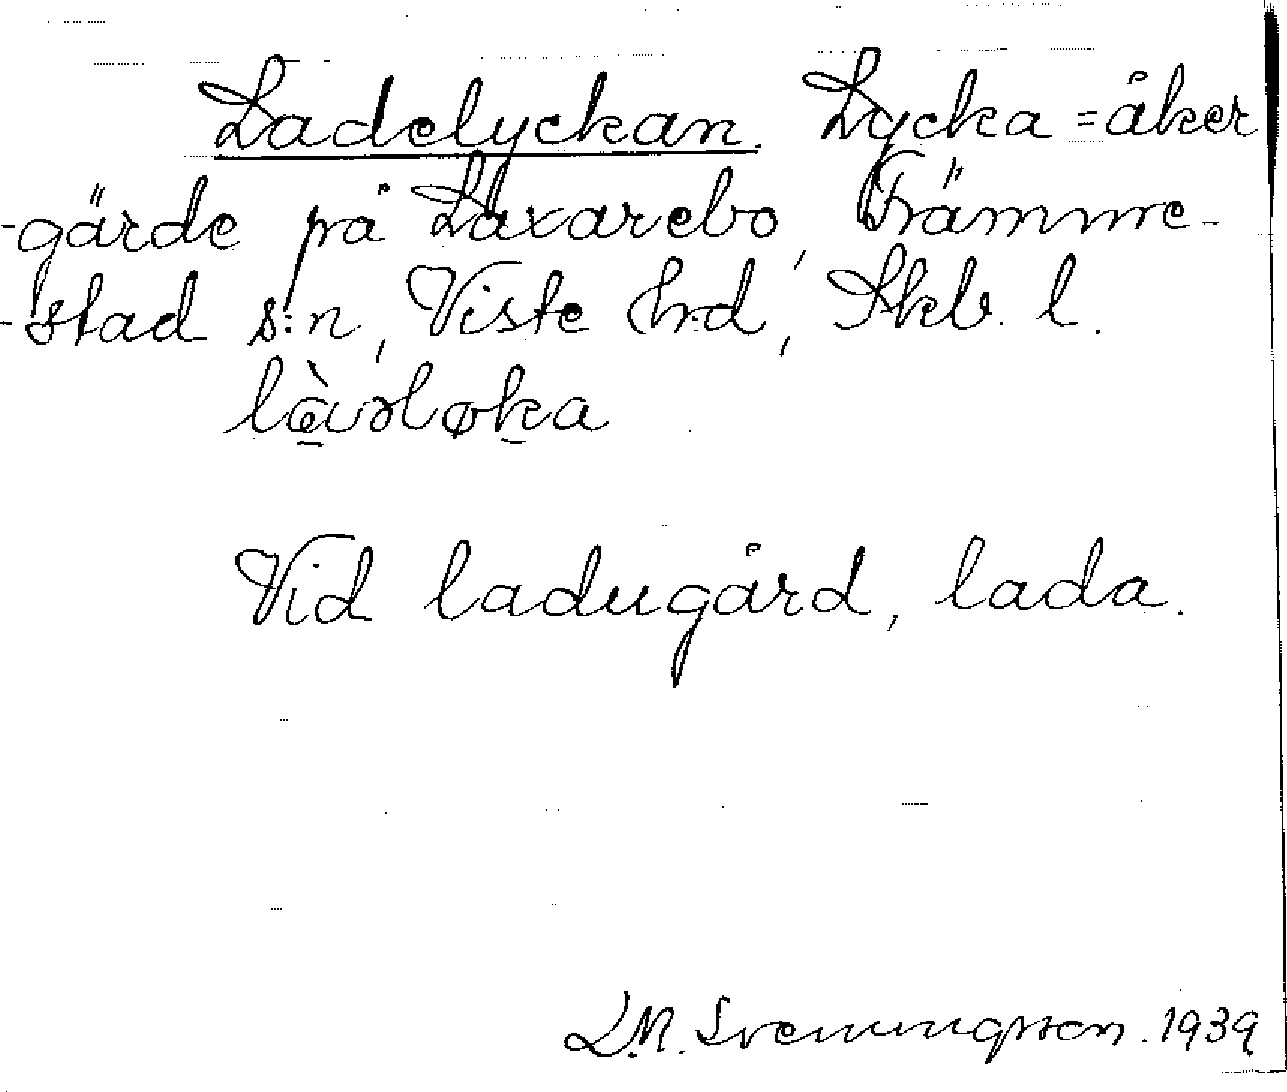 Ladelyckan. Lycka = åker
-gärde på Laxarebo, Främme-
-stad s:n, Viste hrd, Skb. l.
Vid ladugård, lada.
L.M. Svenungsson. 1939